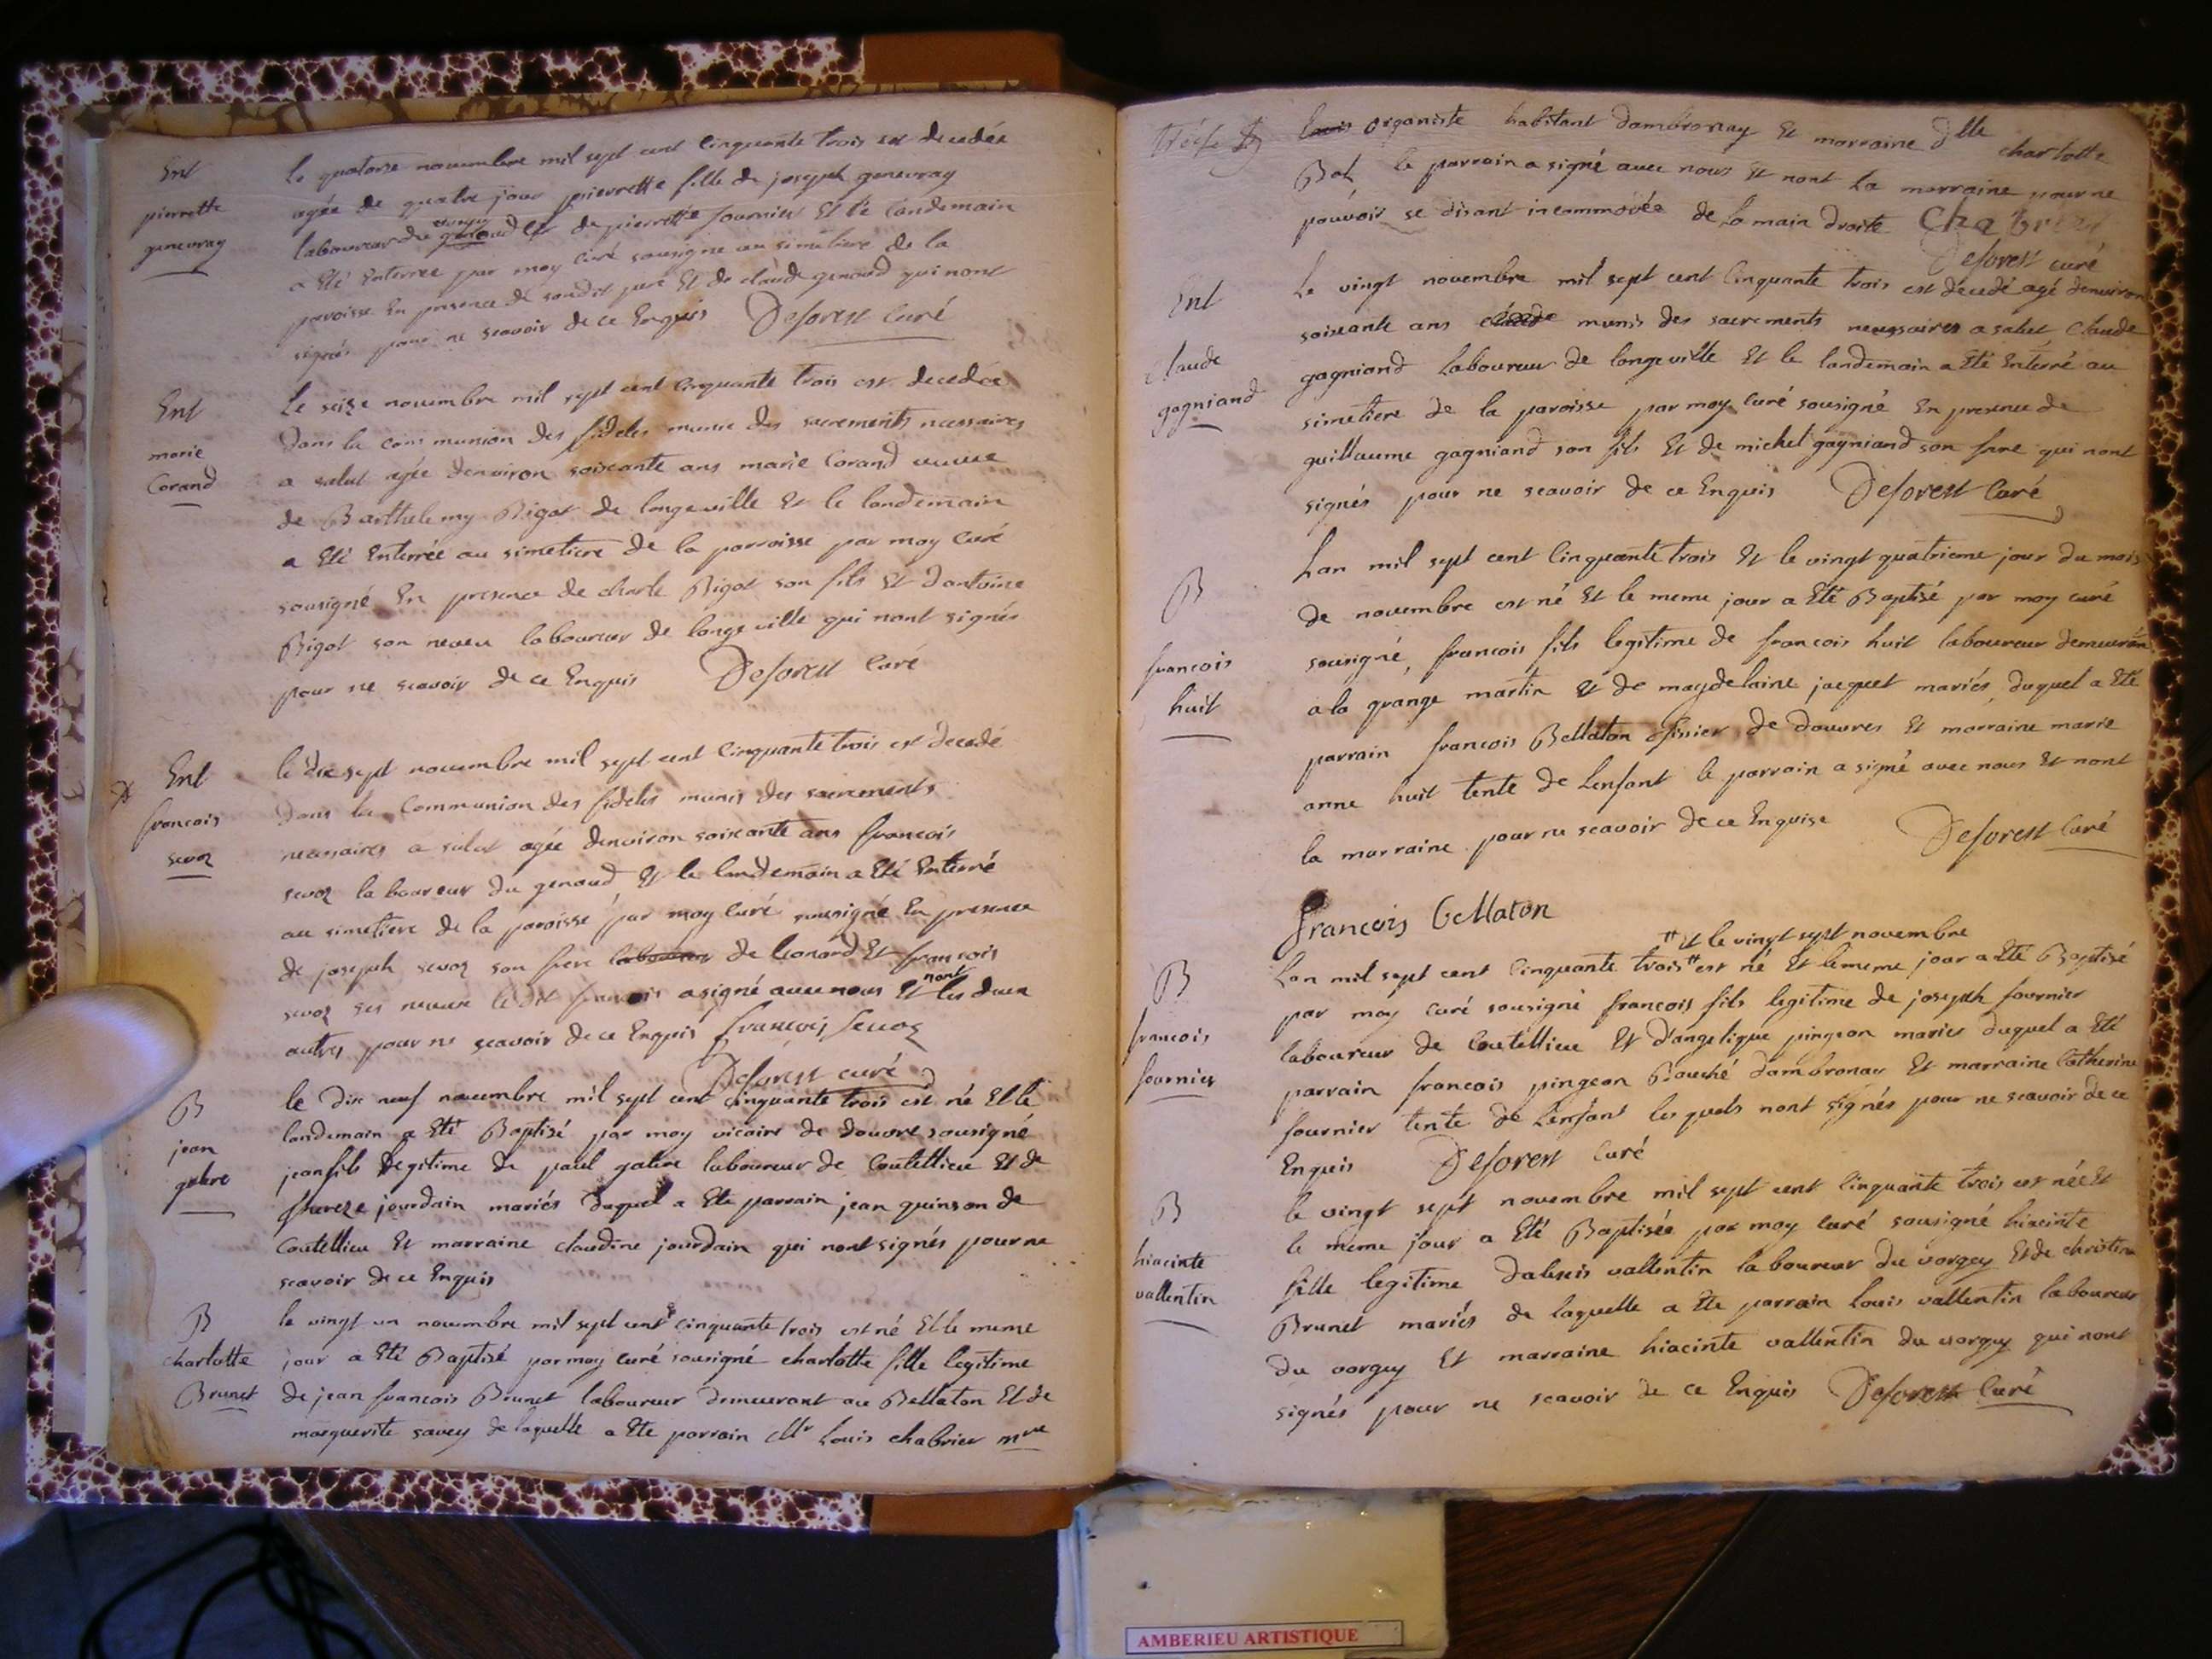 Ent
pierrette
genevray
Le quatorse novembre mil sept cent Cinquante trois est decedée
agée de quatre jour pierrette fille de joseph genevray
laboureur du genoud Et de pierrette fournier Et le Landemain
a Eté Enterree par moy Curé sousigne au simetiere de la
paroisse En presence de soudit pere Et de claude genoud qui nont
signés pour ne scavoir de ce Enquis Deforest Curé
Ent
marie
Corand
Le seize novembre mil sept cent Cinquante trois est decedée
Dans la communion des fideles munie des sacrements necessaires
a salut agée denviron soixante ans marie Corand veuve
de Barthelemy Bigot de longeville Et le landemain
a Eté Enterrée au simetiere de la parroisse par moy Curé
sousigné En presence de charle Bigot son fils Et dantoine
Bigot son neveu laboureur de longeville qui nont signés
pour ne scavoir de ce Enquis Deforest Curé
Ent
francois
sevoz
le dix sept novembre mil sept cent Cinquante trois est decedé
Dans la Communion des fideles munis des sacrements
necessaires a salut agée denviron soixante ans francois
sevoz laboureur du genoud Et le landemain a Eté Enterré
au simetiere de la paroisse par moy Curé sousigné En presence
de joseph sevoz son frere laboureur de leonard Et francois
sevoz ses neveux le dit francois a signé avec nous Et les deux
nont
autres pour ne scavoir de ce Enquis françois sevoz
Deforest curé
B
jean
gabre
le dix neuf novembre mil sept cent cinquante trois est né Et le
landemain a Eté Baptizé par moy vicaire de douvre sousigné
jean fils legitime de paul gabre laboureur de Coutellieu Et de
therese jourdain mariés duquel a Ete parrain jean quinson de
Coutellieu Et marraine claudine jourdain qui nont signés pour ne
scavoir de ce Enquis
B
charlotte
Brunet
le vingt un novembre mil sept cent cinquante trois est né Et le meme
jour a Eté Baptisé par moy curé sousigné charlotte fille legitime
de jean francois Brunet laboureur demeurant au Bellaton Et de
marguerite savey de laquelle a Ete parrain Mr Louis chabrier mre
louis organiste habitant dambronay Et marraine dlle charlotte
Bal le parrain a signé avec nous Et nont la marraine pour ne
pouvoir se disant incommodée de la main droite Chabrier
Deforest curé
Ent
claude
gagniand
Le vingt novembre mil sept cent Cinquante trois est décedé agé denviron
soixante ans munis des sacrements necessaires a salut Claude
gagniand Laboureur de longeville Et le landemain a Eté Enterré au
simetiere de la paroisse par moy Curé sousigné En presence de
guillaume gagniand son fils Et de michel gagniand son frere qui nont
signés pour ne scavoir de ce Enquis Deforest Curé
B
francois
huit
Lan mil sept cent Cinquante trois Et le vingt quatrieme jour du mois
de novembre est né Et le meme jour a Eté Baptisé par moy curé
sousigné, francois fils legitime de francois huit laboureur demeurant
a la grange martin Et de magdelaine jacquet mariés, duquel a Eté
parrain francois Bellaton ofisier de douvres Et marraine marie
anne huit tente de Lenfant le parrain a signé avec nous Et nont
la marraine pour ne scavoir de ce Enquise Deforest Curé
francois Bellaton
B
francois
fournier
# Et le vingt sept novembre
Lan mil sept cent Cinquante trois # est né Et le meme jour a Eté Baptisé
par moy Curé sousigné francois fils legitime de joseph fournier
laboureur de Coutellieu Et d'angelique pingeon mariés duquel a Eté
parrain francois pingeon Bouché dambronay Et marraine Catherine
fournier tente de Lenfant les quels nont signés pour ne scavoir de ce
Enquis Deforest Curé
B
hiacinte
vallentin
le vingt sept novembre mil sept cent Cinquante trois est née Et
le meme jour a Eté Baptisée par moy Curé sousigné hiacinte
fille legitime dalexis vallentin laboureur du vorgey Et de christine
Brunet mariés de laquelle a Ete parrain Louis vallentin laboureur
du vorgey Et marraine hiacinte vallentin du vorgey qui nont
signés pour ne scavoir de ce Enquis Deforest Curé
AMBERIEU ARTISTIQUE